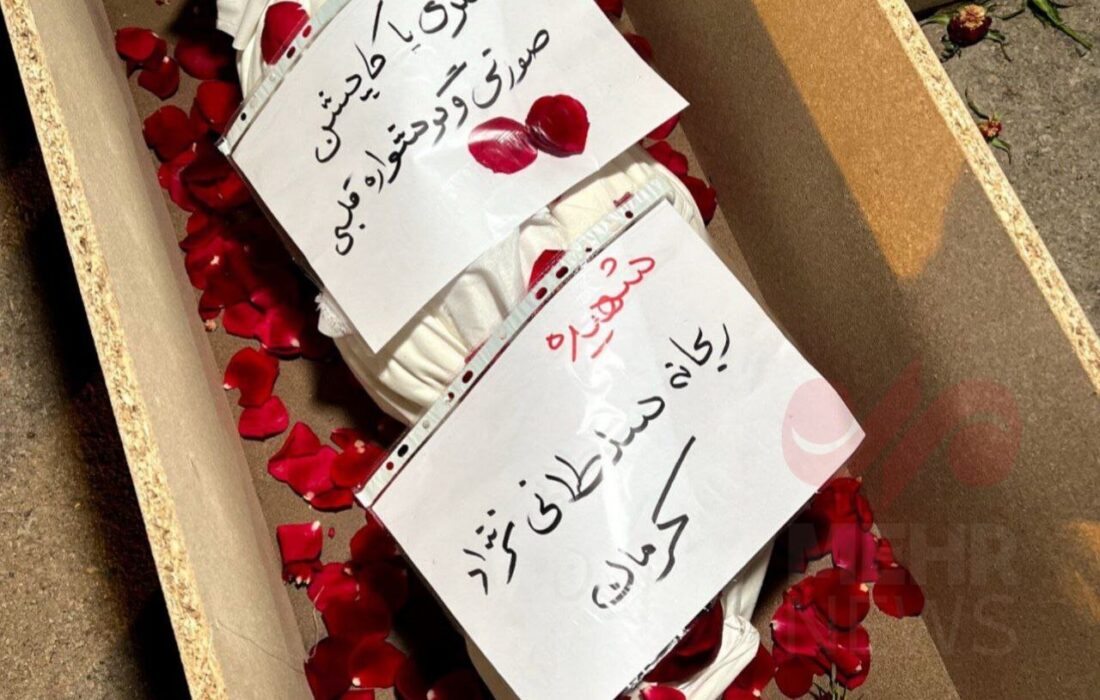 با کاپشن
صورتی و گوشواره قلبی
شهیده
ریحانه سلطانی نژاد
کرمان
MEHR
NEWS